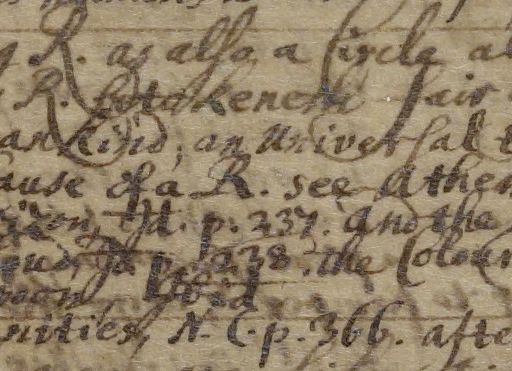 R. as also a Circle a
R. betokeneth fair
an kind; an Universal
ause of a R. see Athen
Id. p. 237. and the
p. 238. the Colour
Ibid
nities, N. C. p. 366. afte